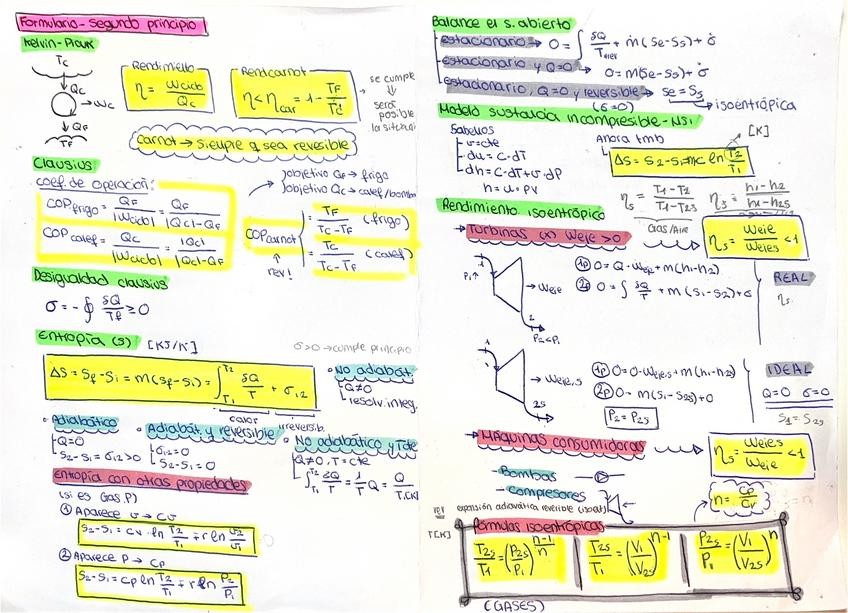 Formulario - segundo principio
Kelvin-Planck
Tc
Qc
Wc
QF
TF
Rendimiento
η = Wciclo / Qc
Rend carnot
η < ηcar = 1 - TF/Tc
se cumple
será posible
la situaci
carnot → siempre q sea reversible
Clausius
coef. de operación:
COPfrigo = QF / |Wciclo| = QF / |Qc|-QF
COPcalef = Qc / |Wciclo| = |Qc| / |Qc|-QF
objetivo QF → frigo
objetivo Qc → calef/bomba
COPcarnot
= TF / Tc-TF (frigo)
= Tc / Tc-TF (calef)
rev!
Desigualdad clausius
σ = - ∮ δQ/Tf ≥ 0
Entropía (S) [KJ/K]
σ>0 → cumple principio
ΔS = Sf - Si = m(sf-si) = ∫T1^T2 δQ/T + σ12
calor
irreversib.
No adiabát.
Q≠0
resolv. integ.
Adiabático
Q=0
S2-S1=σ12>0
Adiabát. y reversible
σ12=0
S2-S1=0
No adiabático y T cte
Q≠0, T=cte
∫T1^T2 δQ/T = 1/T Q = Q/T
Entropía con otras propiedades
(si es Gas.P)
① Aparece v → Cv
S2-S1 = cv · ln T2/T1 + r ln v2/v1
② Aparece P → Cp
S2-S1 = cp ln T2/T1 - r ln P2/P1
Balance el s. abierto
estacionario → 0 = ∫ δQ/T + ṁ(se-ss) + σ̇
estacionario y Q=0 → 0 = ṁ(se-ss) + σ̇
estacionario, Q=0 y reversible → se = ss
(σ=0)
isoentrópica
Modelo sustancia incompresible - NSI
Sabellos
v=cte
du = C·dT
dh = C·dT + v·dP
h = u + PV
Ahora tmb
[K]
ΔS = S2-S1 = mc ln T2/T1
ηs = T1-T2 / T1-T2s
Gas/Aire
ηs = h1-h2 / h1-h2s
Rendimiento isoentrópico
Turbinas (x) Weje>0
ηs = Weje / Wejes <1
1
P1
→ Weje
2
P2<P1
1p) 0 = Q - Weje + m(h1-h2)
2p) 0 = ∫ δQ/T + m(s1-s2) + σ
REAL
ηs
1
→ Weje,s
2s
1p) 0 = 0 - Weje,s + m(h1-h2s)
2p) 0 = m(s1-s2s) + 0
P2 = P2s
IDEAL
Q=0 σ=0
S1 = S2s
Máquinas consumidoras
ηs = Wejes / Weje <1
Bombas
compresores
n = Cp / Cv
rev
expansión adiabática reversible (isoent)
T[K]
Fórmulas isoentrópicas
T2s/T1 = (P2s/P1)^(n-1/n)
T2s/T1 = (V1/V2s)^(n-1)
P2s/P1 = (V1/V2s)^n
(GASES)